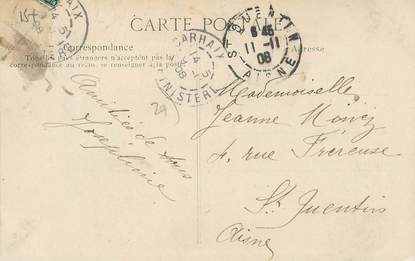 15t
CARTE POSTALE
Correspondance
Adresse
Tous les pays étrangers n'acceptent pas la
correspondance au recto, se renseigner à la poste
CARHAIX
FINISTERE
08
ST QUENTIN
8-45
11-11
08
AISNE
29
Amitiés de tous
Joséphine
Mademoiselle
Jeanne
4, rue Fréreuse
St Quentin
Aisne